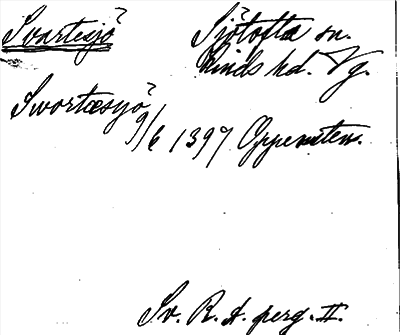 Svartesjö Sjötofta sn.
Kinds hd. Vg.
Swortæsyö
9/6 1397 Oppensten.
Sv. R. A. perg. II.